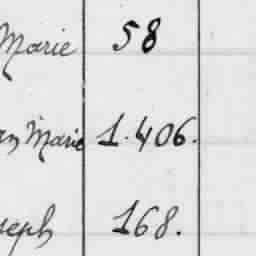 Marie 58
an Marie 1.406.
seph 168.